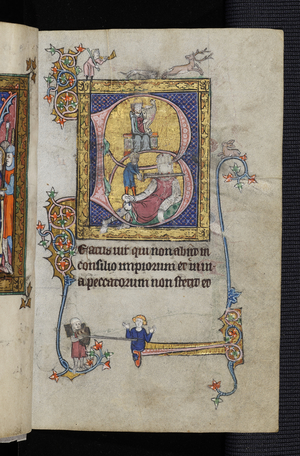 B
Eatus uir qui non abijt in
consilio impiorum et in ui
a peccatorum non stetit et